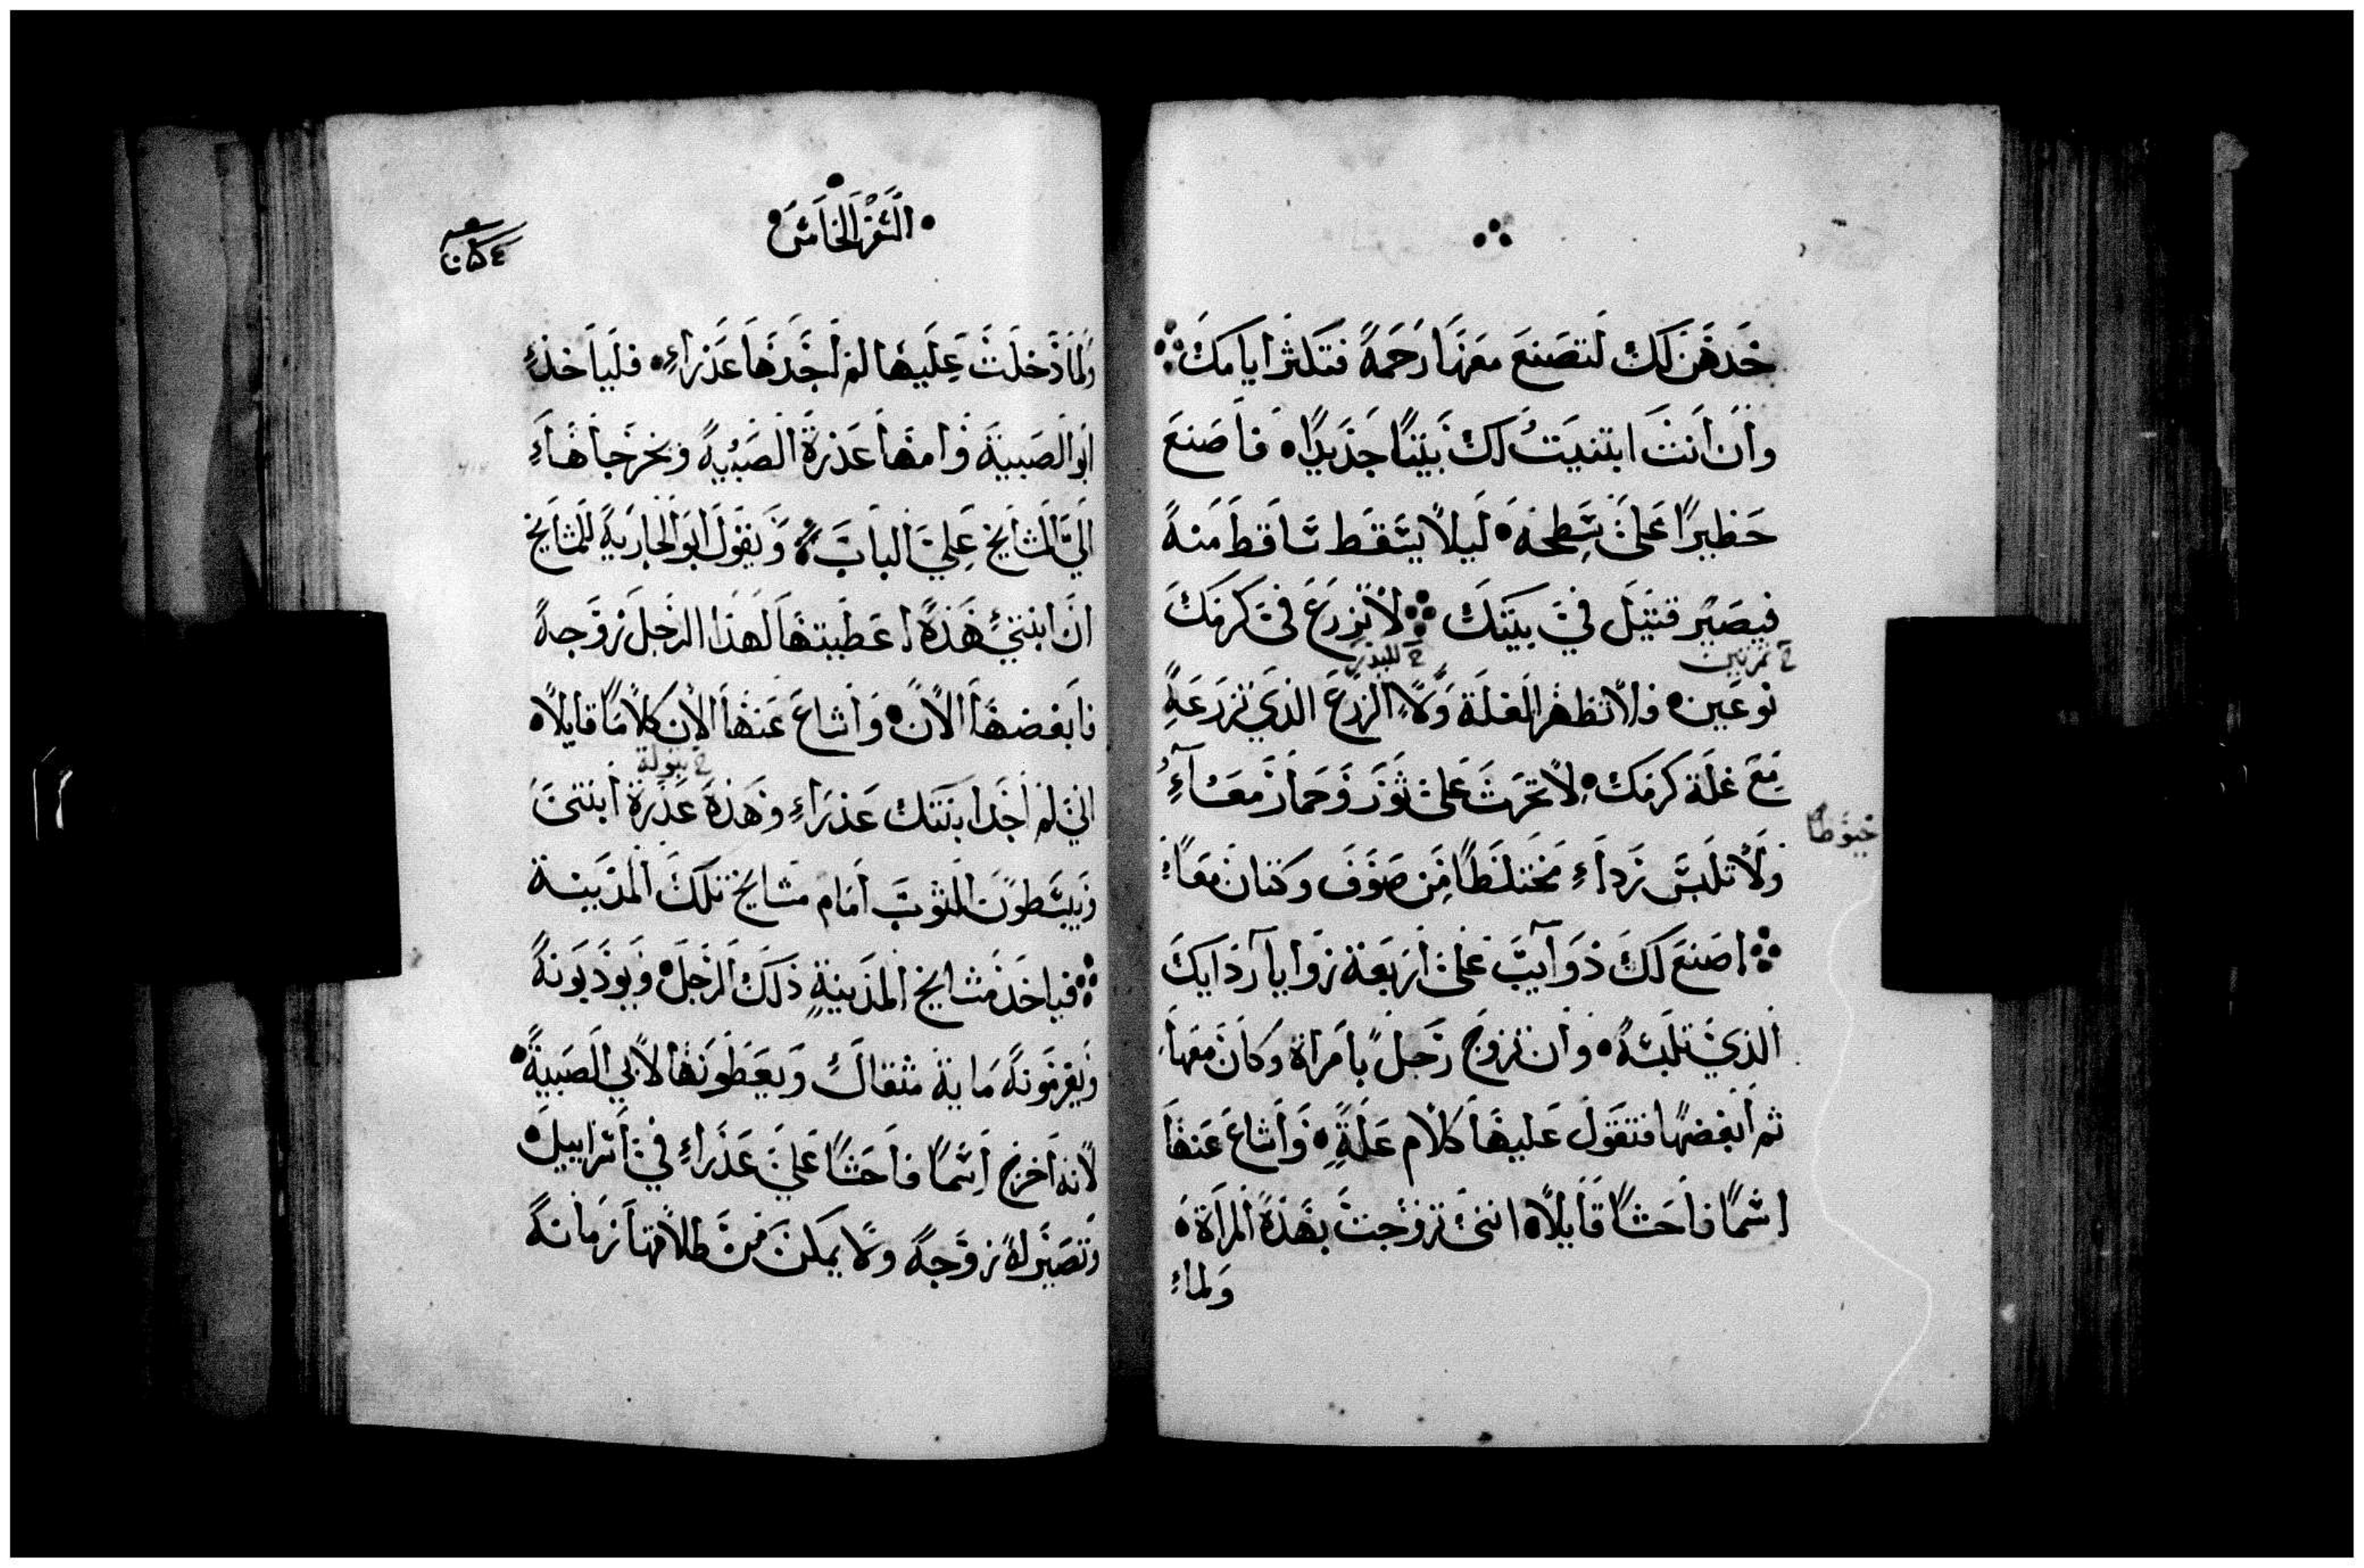 خدهن لك لتصنع معها رحمة فتكثر ايامك
وان انت ابتنيت لك بيتا جديدا فاصنع
حظيرا على سطحه ليلا يسقط ساقط منه
فيصير قتيل في بيتك لا تزرع في كرمك
خ تمرتين خ للبذر
نوعين فلا تظهر الغلة ولا الزرع الذي تزرعه
مع غلة كرمك لا تحرث على ثور وحمار معا
خيوطا
ولا تلبس رداء مختلطا من صوف وكتان معا
اصنع لك ذوايب على اربعة زوايا ردايك
الذي تلبسه وان تزوج رجل بامراة وكان معها
ثم ابغضها فتقول عليها كلام علة واشاع عنها
اسما فاحشا قايلا انني تزوجت بهذه المراة
ولما
السفر الخامس
ولما دخلت عليها لم اجدها عذراء فلياخذ
ابو الصبية وامها عذرة الصبية ويخرجاها
الي المشايخ علي الباب ويقول ابو الجارية للمشايخ
ان ابنتي هذه اعطيتها لهذا الرجل زوجه
فابغضها الان واشاع عنها الان كلاما قايلا
خ بتولة
اني لم اجد ابنتك عذراء وهذه عذرة ابنتى
ويبسطون الثوب امام مشايخ تلك المدينة
فياخذ مشايخ المدينة ذلك الرجل ويوذبونه
ويغرمونه ماية مثقال ويعطونها لابي الصبية
لانه اخرج اسما فاحشا علي عذراء في اسراييل
وتصير له زوجه ولا يمكن من طلاقها زمانه